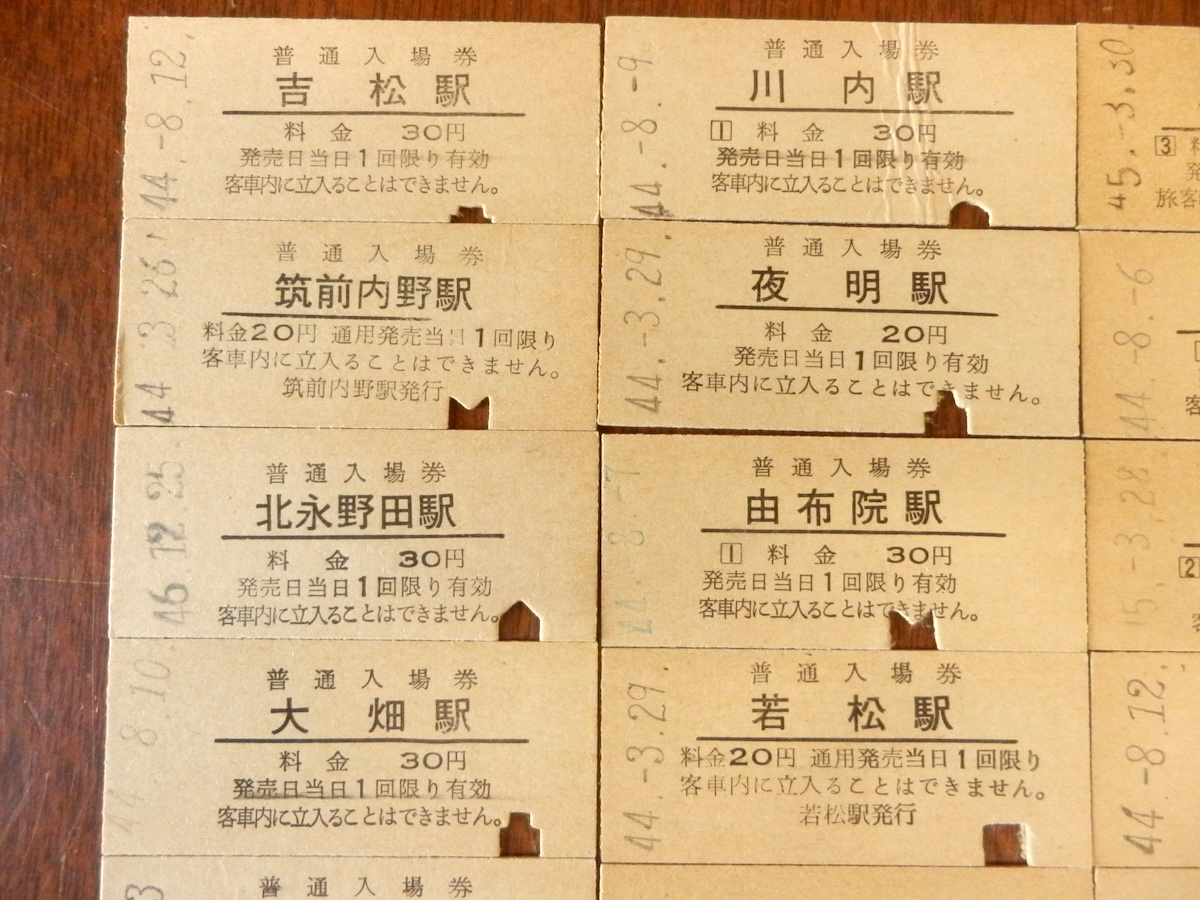 44.-8.12.
普通入場券
吉松駅
料金 30円
発売日当日1回限り有効
客車内に立入ることはできません。
44.-8.-9.
普通入場券
川内駅
1 料金 30円
発売日当日1回限り有効
客車内に立入ることはできません。
45.-3.30.
3
旅客
44.-3.26.
普通入場券
筑前内野駅
料金20円 通用発売当日1回限り
客車内に立入ることはできません。
筑前内野駅発行
44.-3.29.
普通入場券
夜明駅
料金 20円
発売日当日1回限り有効
客車内に立入ることはできません。
44.-8.-6
46.12.25.
普通入場券
北永野田駅
料金 30円
発売日当日1回限り有効
客車内に立入ることはできません。
44.-8.-7
普通入場券
由布院駅
1 料金 30円
発売日当日1回限り有効
客車内に立入ることはできません。
45.-3.28.
2
44.-8.10.
普通入場券
大畑駅
料金 30円
発売日当日1回限り有効
客車内に立入ることはできません。
44.-3.29.
普通入場券
若松駅
料金20円 通用発売当日1回限り
客車内に立入ることはできません。
若松駅発行
44.-8.12.
3
普通入場券